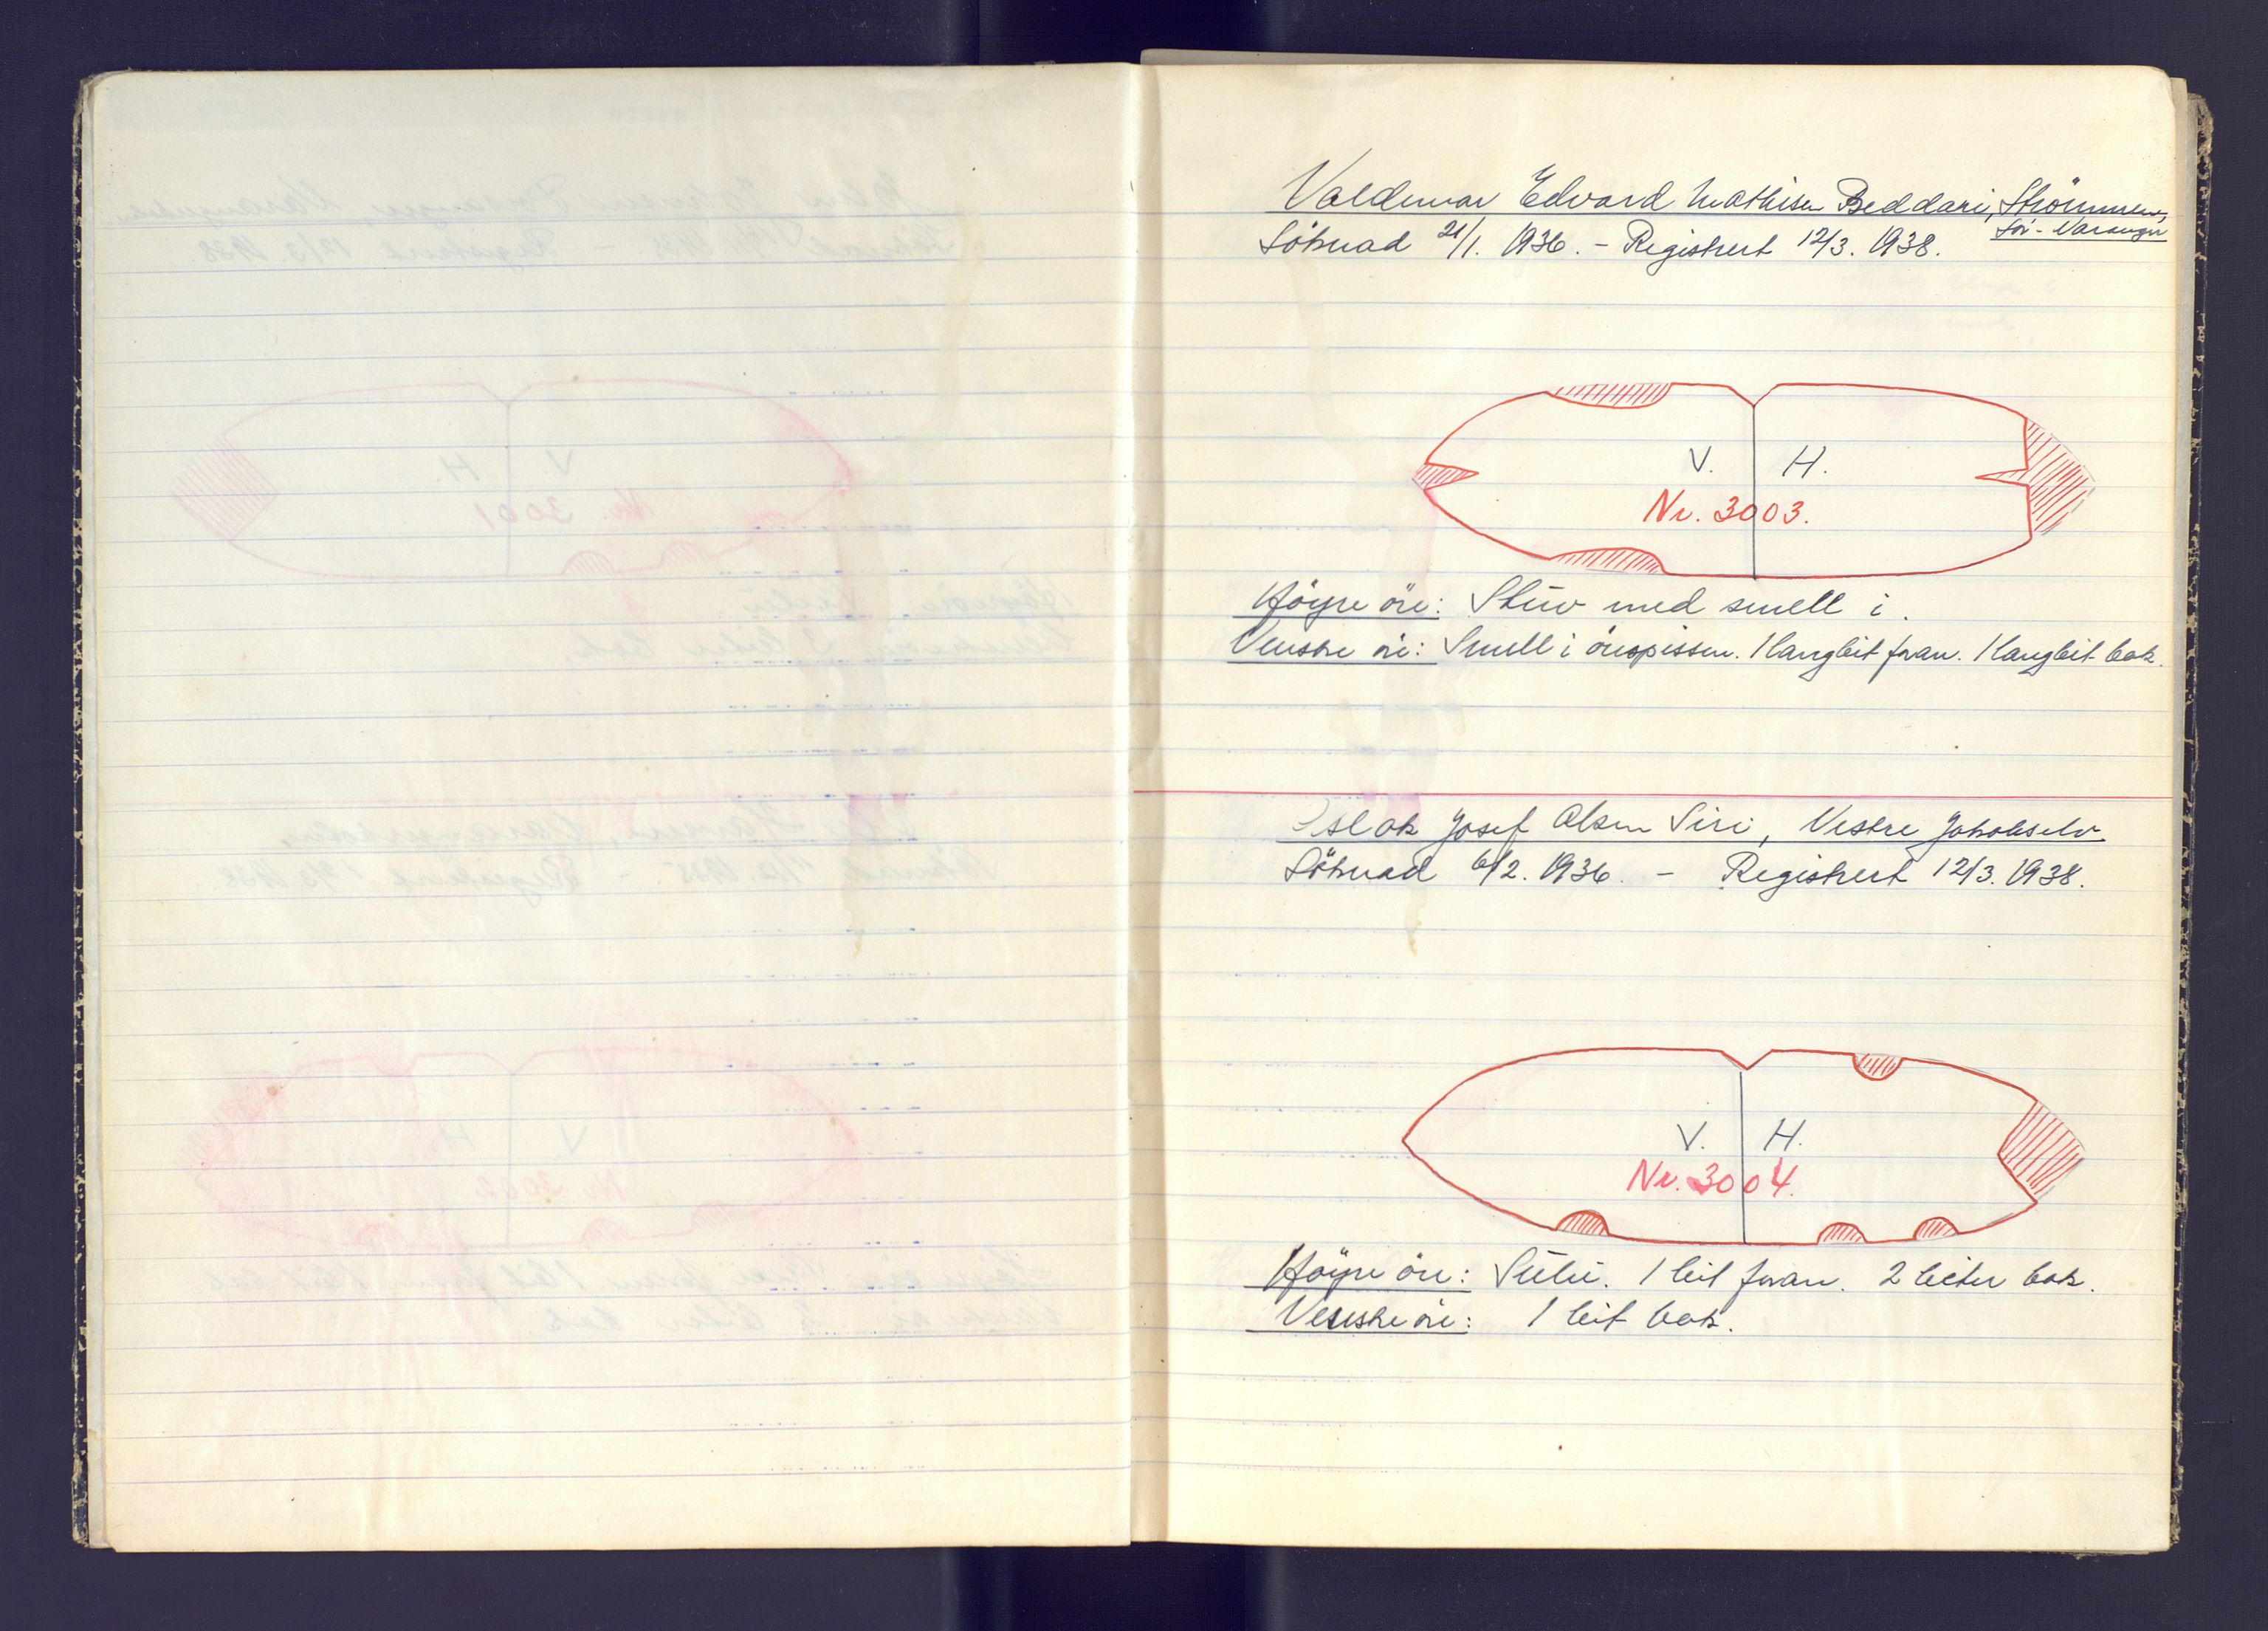 Valdemar Edvard Mathisen Beddari, Strömmen,
Sör-Varanger
Söknad 21/1. 1936. – Registrert 12/3. 1938.
V. H.
Nr. 3003.
Höyre öre: Stüv med smell i.
Venstre öre: Smell i örespissen. 1 langbit fran. 1 langbit bak.
Aslak Josef Olsen Siri, Vestre Jakobselv
Söknad 6/2. 1936. – Registrert 12/3. 1938.
V. H.
Nr. 3004.
Höyre öre: 1 bit fran. 2 biter bak.
Venstre öre: 1 bit bak.